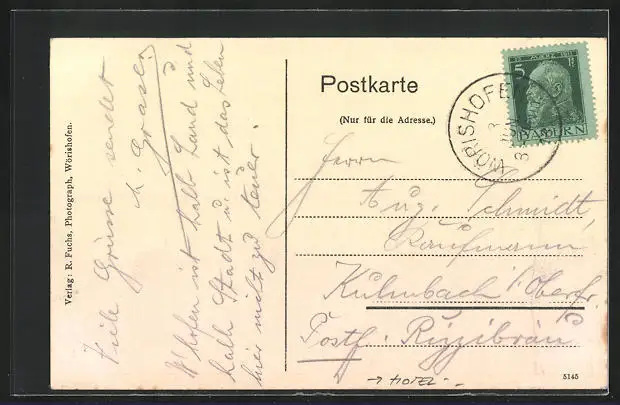 Viele Grüsse sendet
M. Grasse.
W'hofen ist halb Land und
halb Stadt u. ist das Leben
hier nicht zu teuer.
Verlag: R. Fuchs, Photograph, Wörishofen.
Postkarte
(Nur für die Adresse.)
WÖRISHOFEN
12. MÄRZ 1911
5
BAYERN
Herrn
Aug. Schmidt,
Kaufmann
Kulmbach i/Oberfr.
Postf. Rizzibräu
5145
→ HOTEL